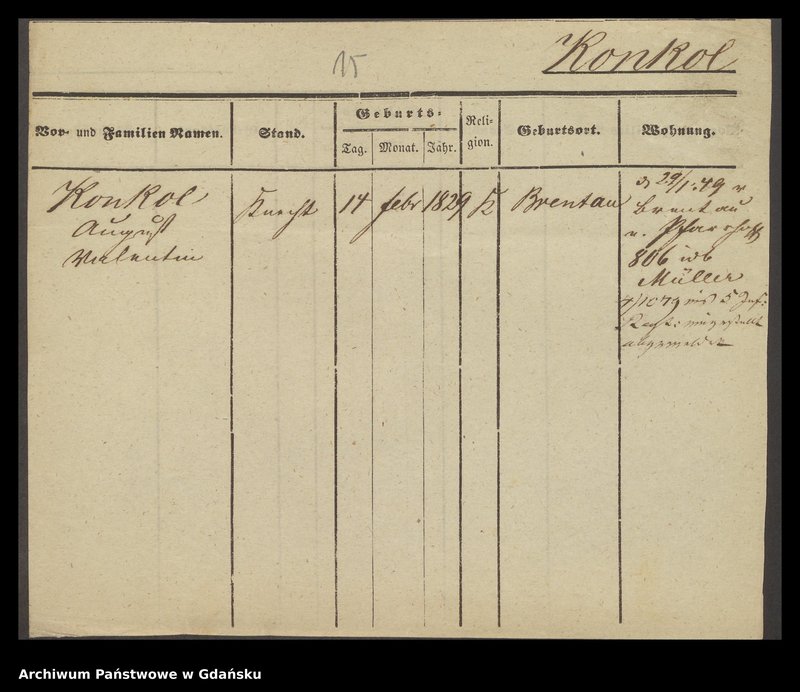 15
Konkol
Vor- und Familien Namen.
Stand.
Geburts-
Tag.
Monat.
Jahr.
Reli-
gion.
Geburtsort.
Wohnung.
Konkol
August
Valentin
Knecht
14
febr
1829
K
Brentau
29/1. 49 v
Brentau
n.
806 wb
Müller
5 Inf:
eingestellt
abgemeldet
Archiwum Państwowe w Gdańsku